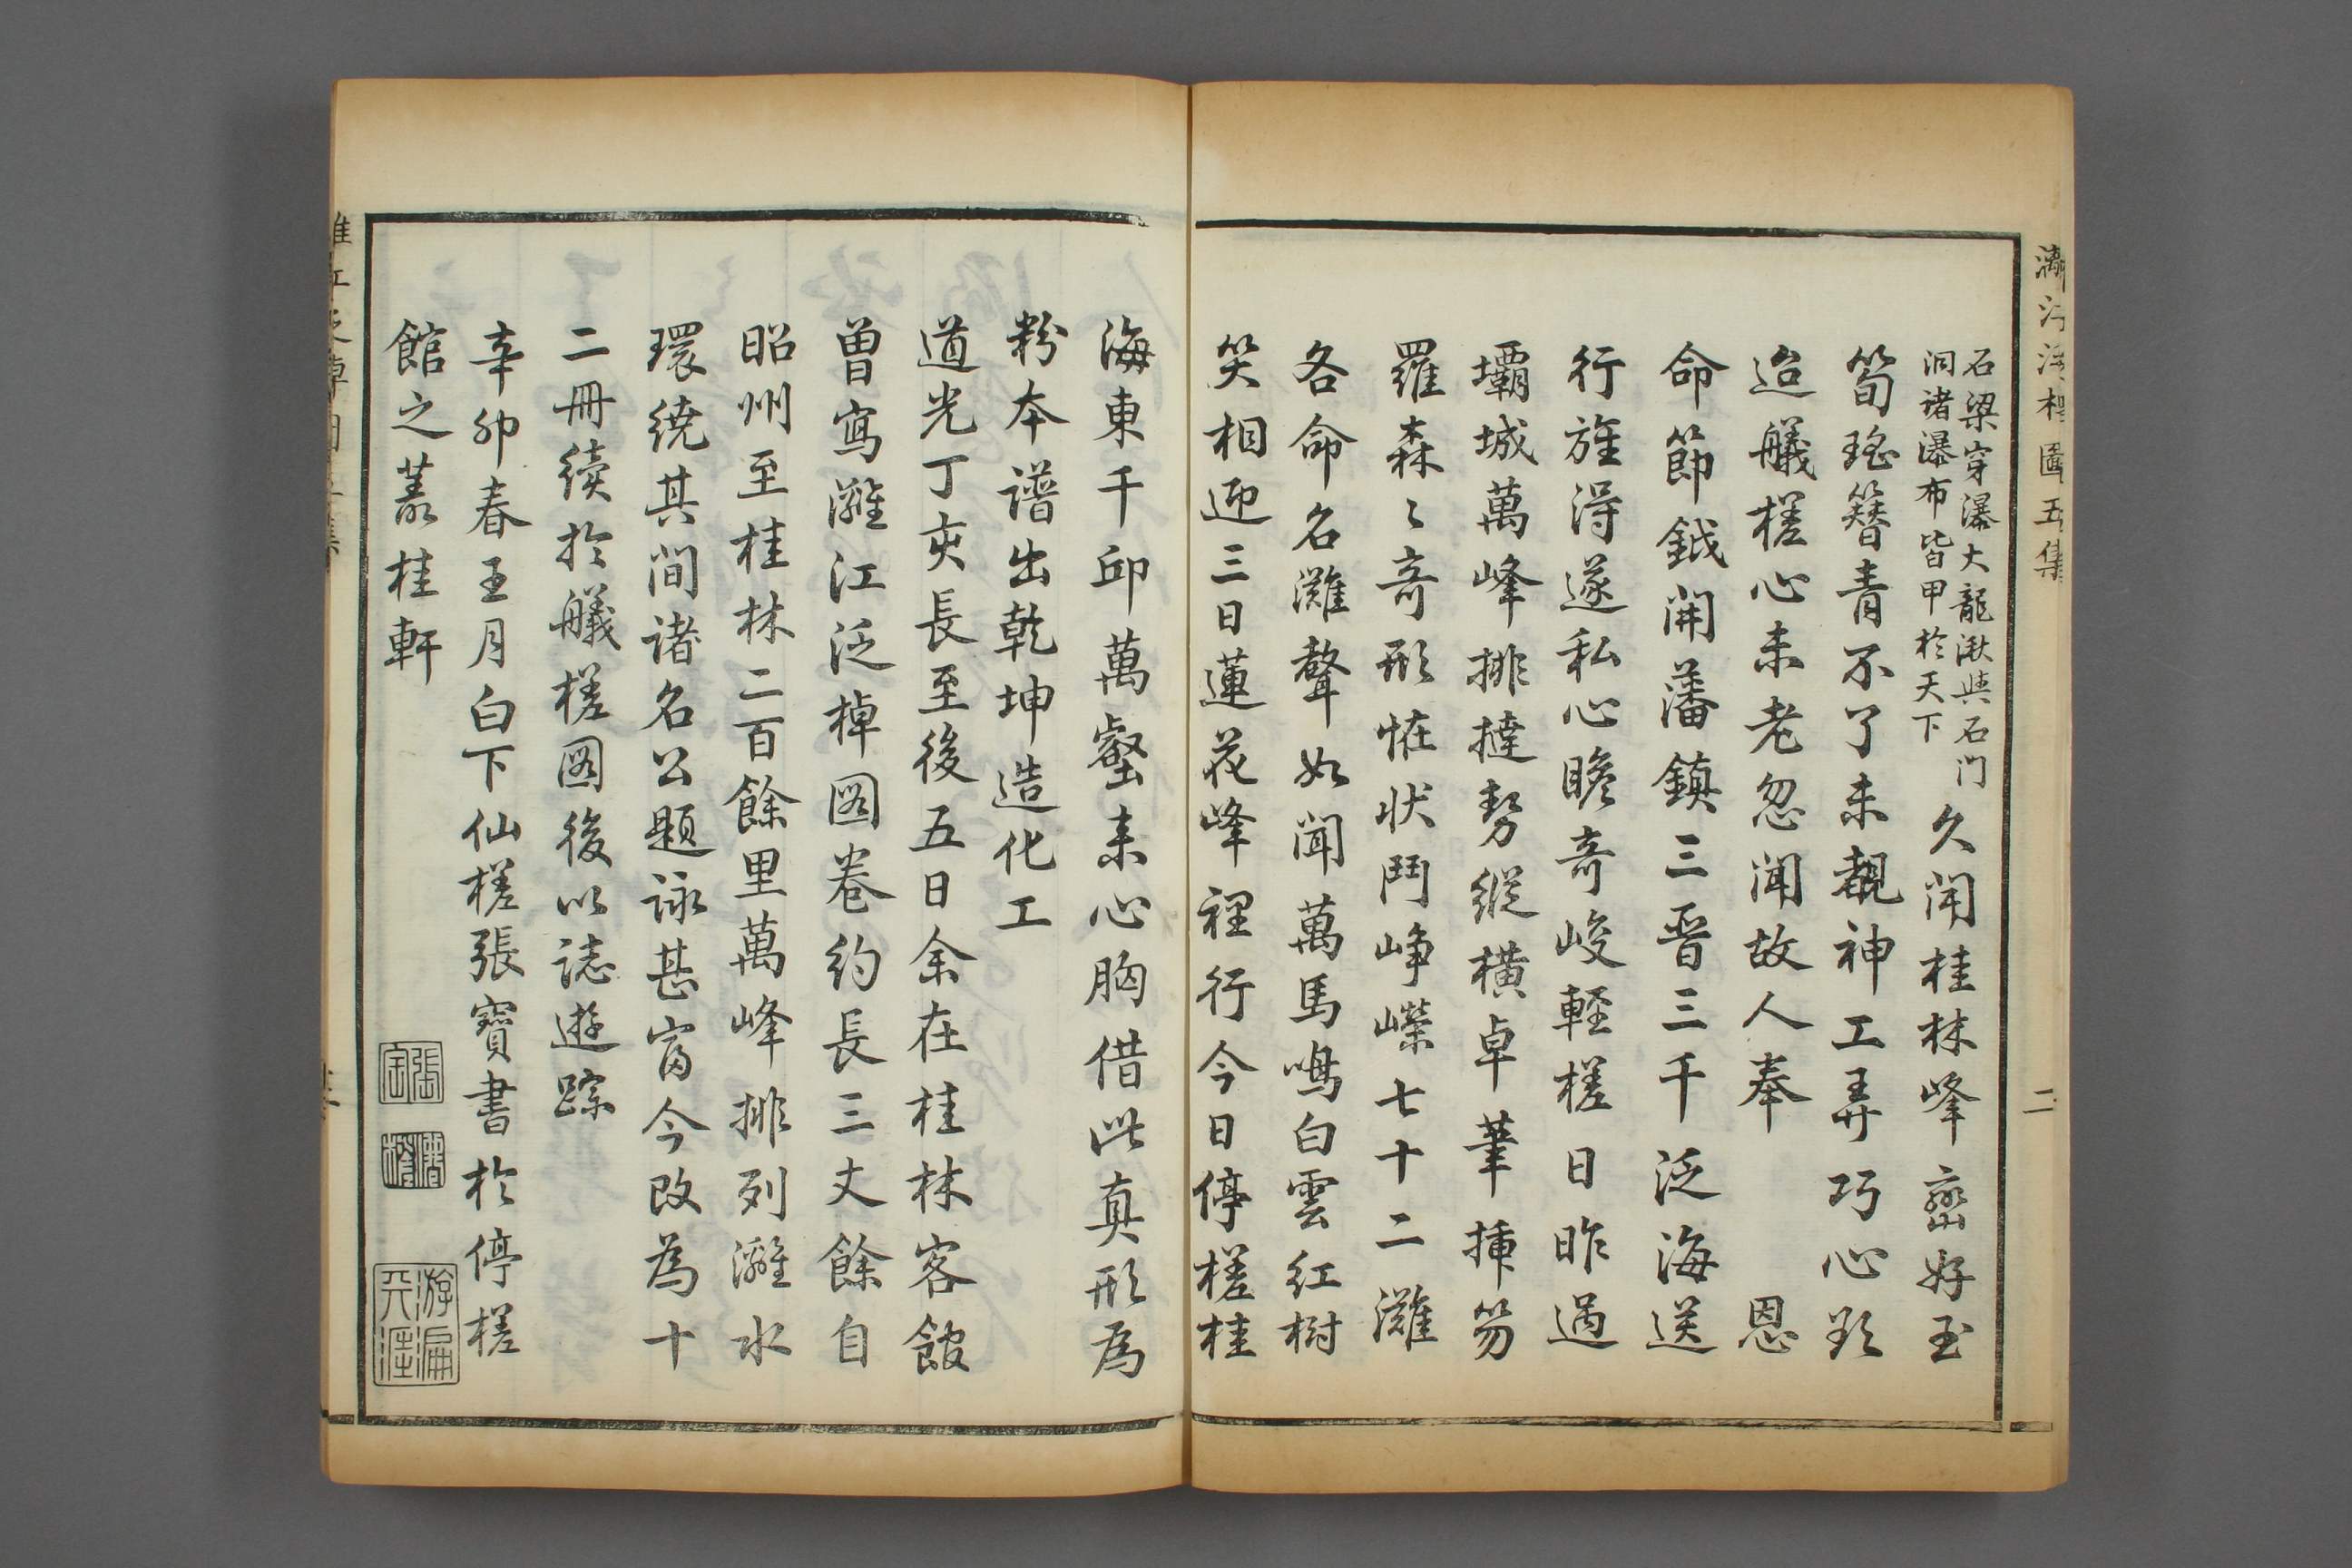 灕江泛棹圖五集
二
石梁穿瀑大龍湫與石門
洞诸瀑布皆甲於天下
久闻桂林峰巒好玉
筍瑤簪青不了未覩神工弄巧心欵
迨艤槎心未老忽闻故人奉 恩
命節鉞開藩鎮三晋三千泛海送
行旌淂遂私心瞻竒峻輕槎日昨過
壩城萬峰排撻勢縱橫卓筆揷笏
羅森〻竒形恠状鬥崢嶸七十二灘
各命名灘聲如聞萬馬鳴白雲红樹
笑相迎三日蓮花峰裡行今日停槎桂
海東千邱萬壑耒心胸借此真形為
粉本譜出乾坤造化工
道光丁亥長至後五日余在桂林客館
曾寫灕江泛棹圖卷约長三丈餘自
昭州至桂林二百餘里萬峰排列灕水
環繞其間诸名公題詠甚富今改為十
二冊續於艤槎圖後以誌遊踪
辛卯春王月白下仙槎張寶書於停槎
館之叢桂軒
張寶
仙槎
游遍天涯